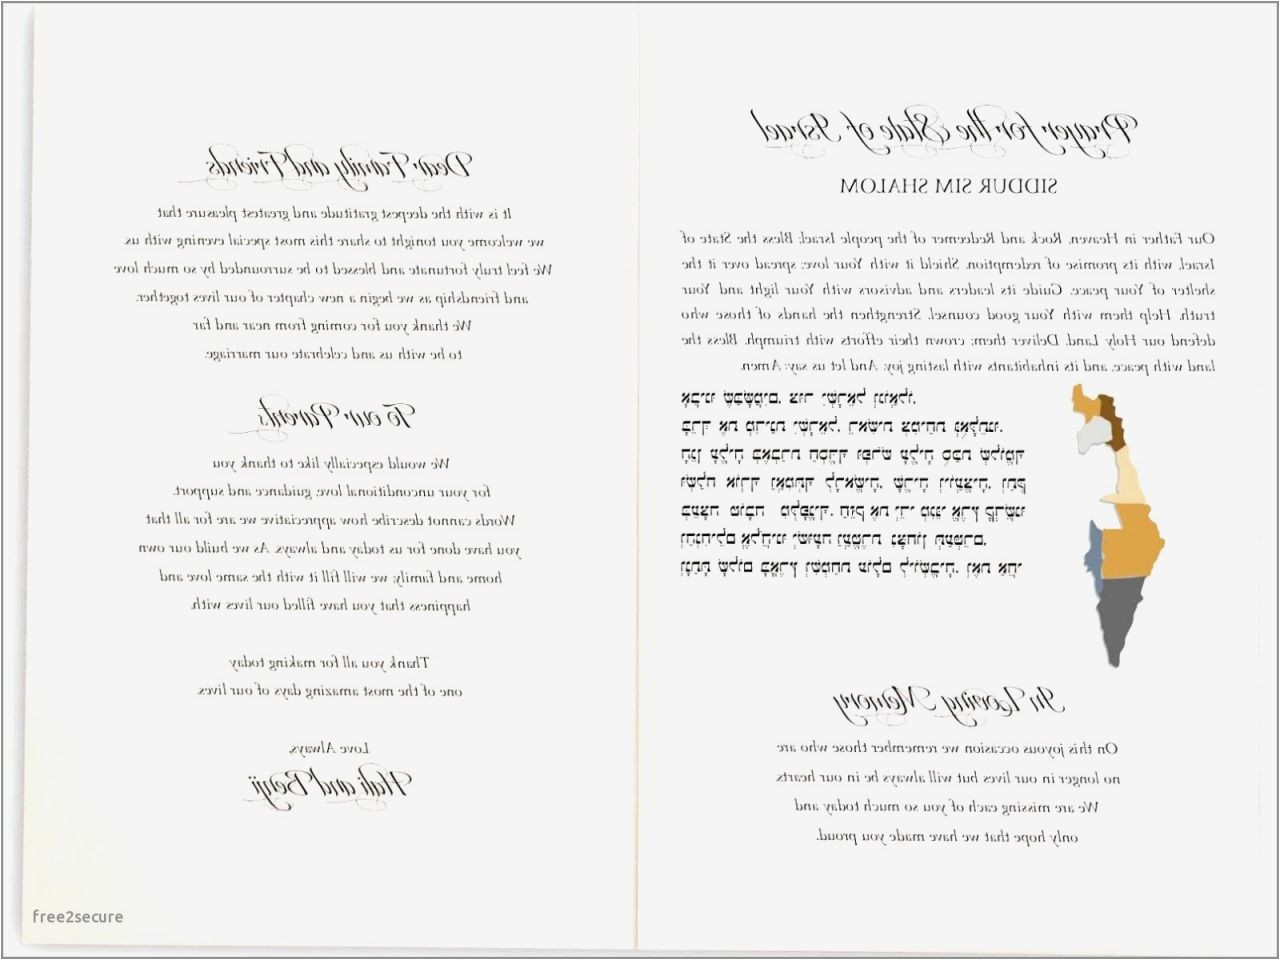 Prayer for the State of Israel
SIDDUR SIM SHALOM
Our Father in Heaven, Rock and Redeemer of the people Israel; Bless the State of
Israel, with its promise of redemption. Shield it with Your love; spread over it the
shelter of Your peace. Guide its leaders and advisors with Your light and Your
truth. Help them with Your good counsel. Strengthen the hands of those who
defend our Holy Land. Deliver them; crown their efforts with triumph. Bless the
land with peace, and its inhabitants with lasting joy. And let us say: Amen.
אבינו שבשמים, צור ישראל וגואלו,
ברך את מדינת ישראל, ראשית צמיחת גאולתנו.
הגן עליה באברת חסדך ופרס עליה סכת שלומך
ושלח אורך ואמתך לראשיה, שריה ויועציה, ותקנם
בעצה טובה מלפניך. חזק את ידי מגני ארץ קדשנו
והנחילם אלהינו ישועה ועטרת נצחון תעטרם.
ונתת שלום בארץ ושמחת עולם ליושביה, ונאמר אמן.
In Loving Memory
On this joyous occasion we remember those who are
no longer in our lives but will always be in our hearts.
We are missing each of you so much today and
only hope that we have made you proud.
Dear Family and Friends
It is with the deepest gratitude and greatest pleasure that
we welcome you tonight to share this most special evening with us.
We feel truly fortunate and blessed to be surrounded by so much love
and friendship as we begin a new chapter of our lives together.
We thank you for coming from near and far
to be with us and celebrate our marriage.
To our Parents
We would especially like to thank you
for your unconditional love, guidance and support.
Words cannot describe how appreciative we are for all that
you have done for us today and always. As we build our own
home and family; we will fill it with the same love and
happiness that you have filled our lives with.
Thank you all for making today
one of the most amazing days of our lives.
Love Always,
Hali and Benji
free2secure